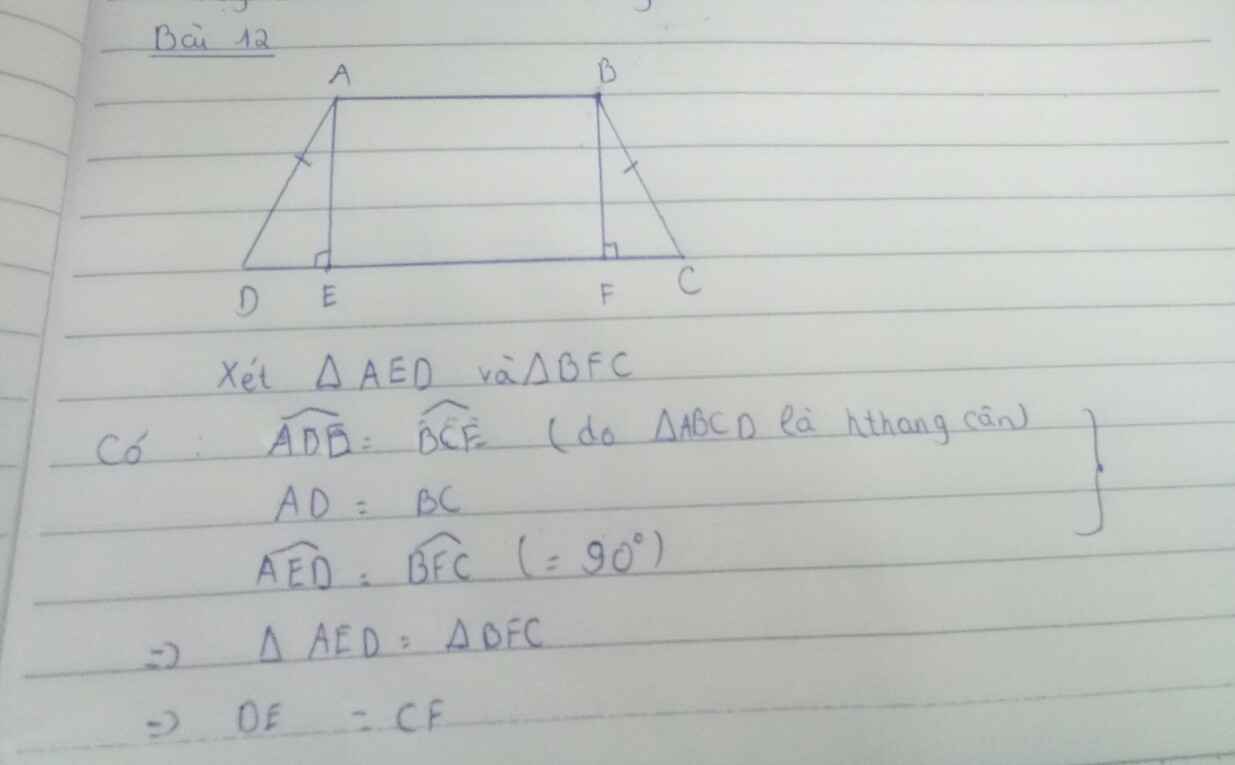 Bài 12
A B
D E F C
Xét Δ AED và ΔBFC
Có : ADE = BCF (do ΔABCD là hthang cân)
AD = BC
AED = BFC (= 90°)
=> Δ AED = Δ BFC
=> DE = CF